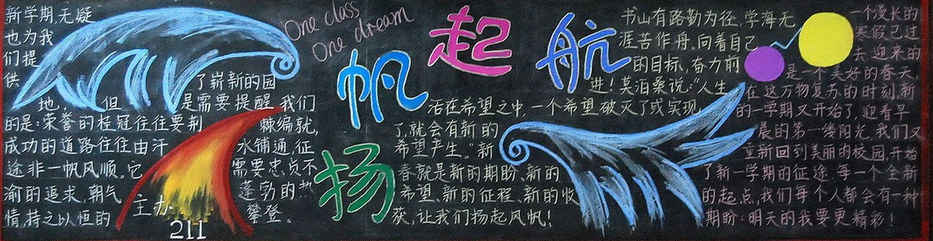 新学期,无疑
也为我
们提
供 了崭新的园
地, 但 是需要提醒 我们
的是:荣誉的桂冠往往要荆 棘编就,
成功的道路往往由汗 水铺通,征
途非一帆风顺。它 需要忠贞不
渝的追求,朝气 蓬勃的热
情,持之以恒的 攀登。
主办
211
One class
One dream
扬帆起航
书山有路勤为径,学海无
涯苦作舟,向着自己
的目标,奋力前
进!莫泊桑说:“人生
活在希望之中 一个希望破灭了或实现
了,就会有新的
希望产生。”新
春就是新的期盼、新的
希望、新的征程、新的收
获,让我们扬起风帆!
一个漫长的
寒假已过
去,迎来的
是一个美好的春天
在这万物复苏的时刻,新
的一学期又开始了,迎着早
晨的第一缕阳光,我们又
重新回到美丽的校园,开始
了新一学期的征途,每一个全新
的起点,我们每个人都会有一种
期盼:明天的我要更精彩!